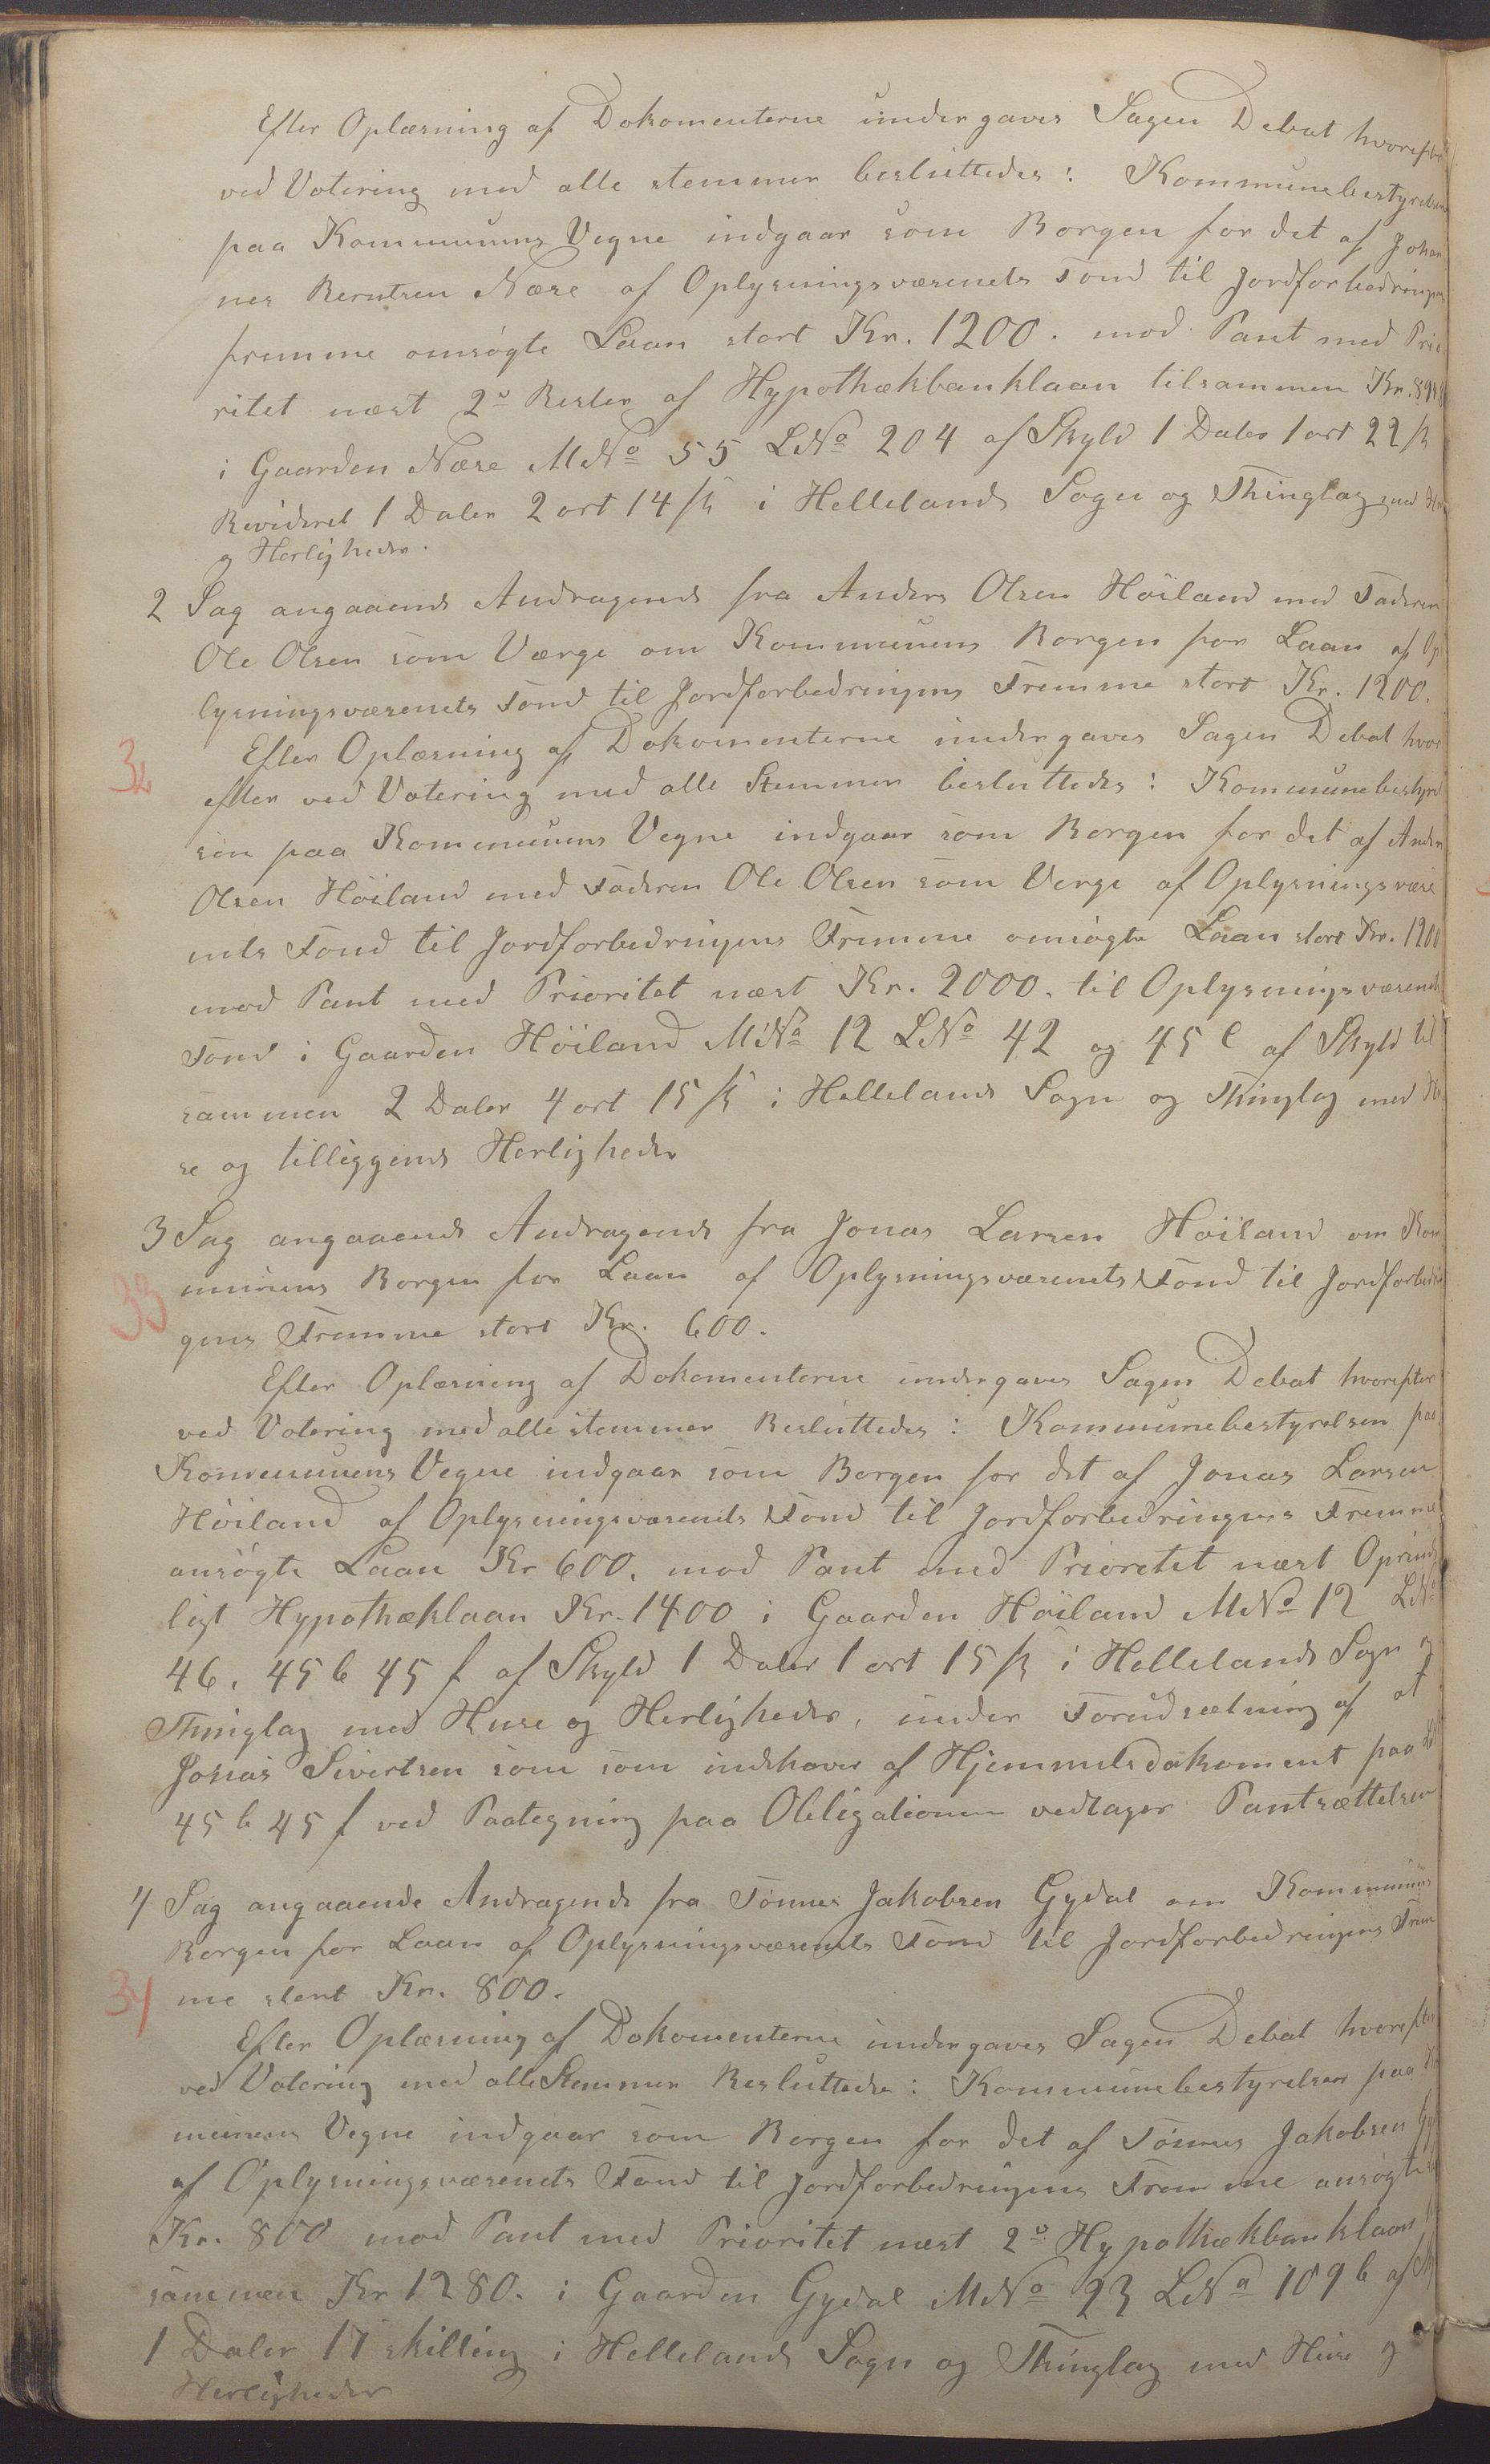 Efter Oplæsning af Dokomenterne undergaves Sagen Debat hvorefter
ved Votering med alle stemmer besluttedes: Kommunebestyrelsen
paa Kommunens Vegne indgaar som Borgen for det af Johan
nes Berntsen Næse af Oplysningsvæsenets Fond til Jordforbedringens
fremme omsøgte Laan stort Kr. 1200. mod Pant med Prio
ritet næst 2de Rester af Hypothækbanklaan tilsammen Kr.
i Gaarden Næse MNo 55 LNo 204 af Skyld 1 Daler 1 ort 22 sk
Revideret 1 Daler 2 ort 14 sk i Hellelands Sogn og Thinglag med
og Herligheder.
2 Sag angaaende Andragende fra Anders Olsen Høiland med Faderen
Ole Olsen som Værge om Kommunens Borgen for Laan af Op
lysningsvæsenets Fond til Jordforbedringens Fremme stort Kr. 1200.
32 Efter Oplæsning af Dokomenterne undergaves Sagen Debat hvor
efter ved Votering med alle Stemmer besluttedes: Kommunebestyrel
sen paa Kommunens Vegne indgaar som Borgen for det af Anders
Olsen Høiland med Faderen Ole Olsen som Verge af Oplysningsvæse
nets Fond til Jordforbedringens Fremme omsøgte Laan stort Kr. 1200
mod Pant med Prioritet næst Kr. 2000. til Oplysningsvæsenets
Fond i Gaarden Høiland MNo 12 LNo 42 og 45 e af Skyld til
sammen 2 Daler 4 ort 15 sk i Hellelands Sogn og Thinglag med Hu
se og tilliggende Herligheder
3 Sag angaaende Andragende fra Jonas Larsen Høiland om Kom
munens Borgen for Laan af Oplysningsvæsenets Fond til Jordforbedrin
33 gens Fremme stort Kr. 600.
Efter Oplæsning af Dokomenterne undergaves Sagen Debat hvorefter
ved Votering med alle stemmer Besluttedes: Kommunebestyrelsen paa
Kommunens Vegne indgaar som Borgen for det af Jonas Larsen
Høiland af Oplysningsvæsenets Fond til Jordforbedringens Fremme
ansøgte Laan Kr 600. mod Pant med Prioretet næst Oprinde
ligt Hypothæklaan Kr. 1400 i Gaarden Høiland MNo 12 LNo
46, 45 b 45 f af Skyld 1 Daler 1 ort 15 sk i Hellelands Sogn og
Thinglag med Huse og Herligheder, under Forudsætning af at
Jonas Sivertsen som som indehaver af Hjemmelsdokoment paa
45 b 45 f ved Paategning paa Obligationen vedtager Pantsættelsen
4 Sag angaaende Andragende fra Tønnes Jakobsen Gydal om Kommunens
Borgen for Laan af Oplysningsvæsenets Fond til Jordforbedringens Frem
34 me stort Kr. 800.
Efter Oplæsning af Dokomenterne undergaves Sagen Debat hvorefter
ved Votering med alle Stemmer Besluttedes: Kommunebestyrelsen paa
munens Vegne indgaar som Borgen for det af Tønnes Jakobsen
af Oplysningsvæsenets Fond til Jordforbedringens Fremme ansøgte
Kr. 800 mod Pant med Prioritet næst 2de Hypothækbanklaan
sammen Kr 1280. i Gaarden Gydal MNo 23 LNo 109 b af
1 Daler 17 skilling i Hellelands Sogn og Thinglag med Huse og
Herligheder